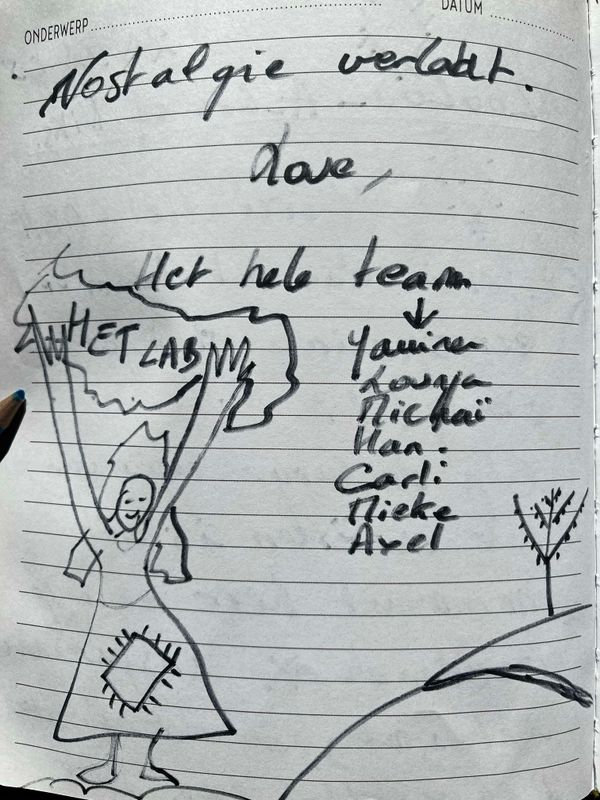 ONDERWERP
DATUM
Nostalgie verlabt.
Love,
Het hele team
HET LAB
Yamina
Lounja
Michaï
Han.
Carli
Mieke
Axel